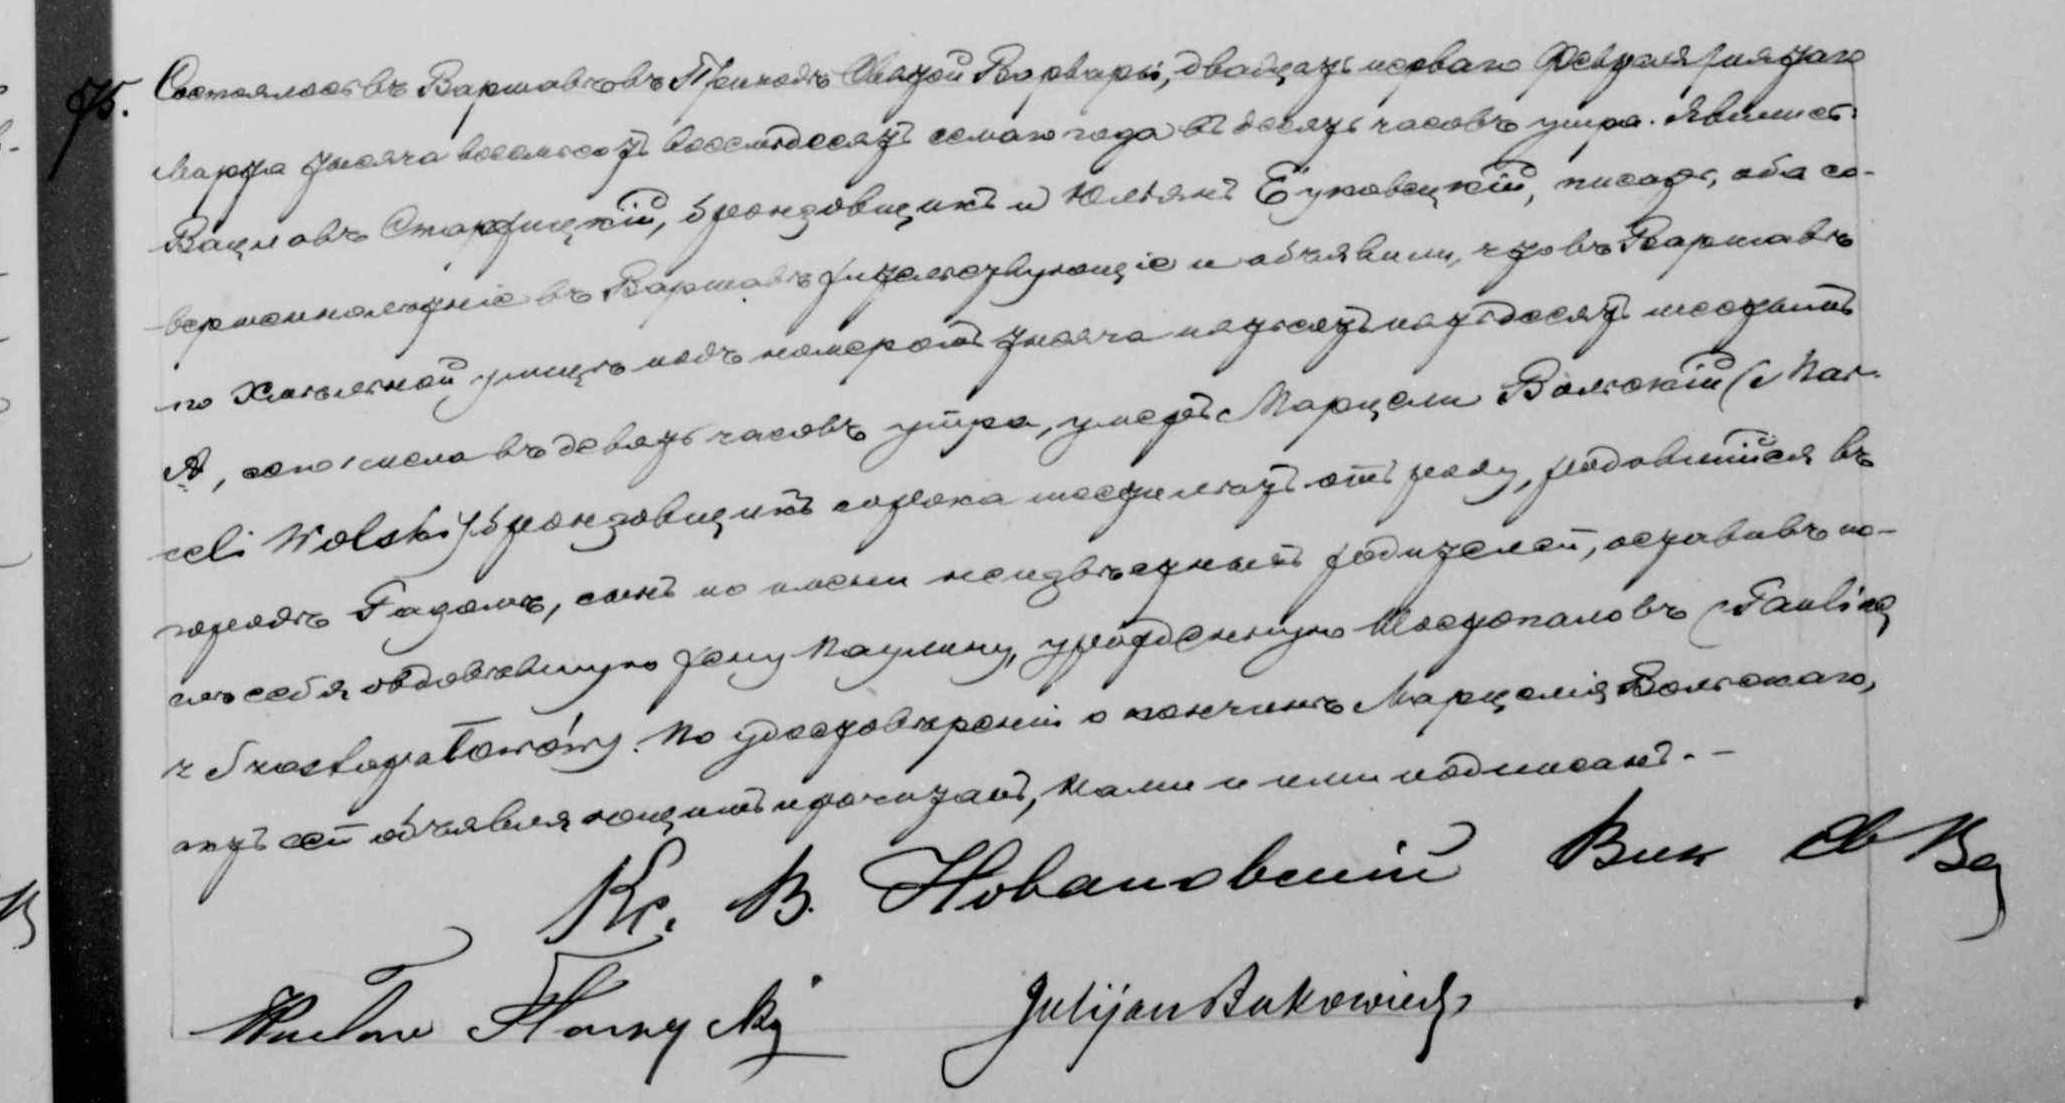 75. Состоялось въ Варшавѣ въ Приходѣ Святой Варвары, двадцать перваго Февраля /пятаго
Марта тысяча восемьсотъ восемьдесятъ седьмаго года въ десять часовъ утра. Явились:
Вацлавъ бронзовщикъ и Юльянъ писарь, оба со-
вершеннолѣтніе въ Варшавѣ жительствующіе и объявили, что въ Варшавѣ
по Хмѣльной улицѣ подъ номеромъ тысяча пятьсотъ пятьдесятъ шестымъ
А, сего числа въ девять часовъ утра, умеръ Марцели Вольскій (Mar-
celi Wolski) бронзовщикъ сорока шести лѣтъ отъ роду, родившійся въ
городѣ Радомѣ, сынъ по имени неизвѣстныхъ родителей, оставивъ по-
слѣ себя овдовѣвшую жену Паулину, урожденную (Paulina
z Szostopałowów). По удостовѣреніи о кончинѣ Марцелія Вольскаго,
актъ сей объявляющимъ прочитанъ, Нами и ими подписанъ. -
Кс. В. Новаковскій Вик Св Ва
Julijan Bukowiecki